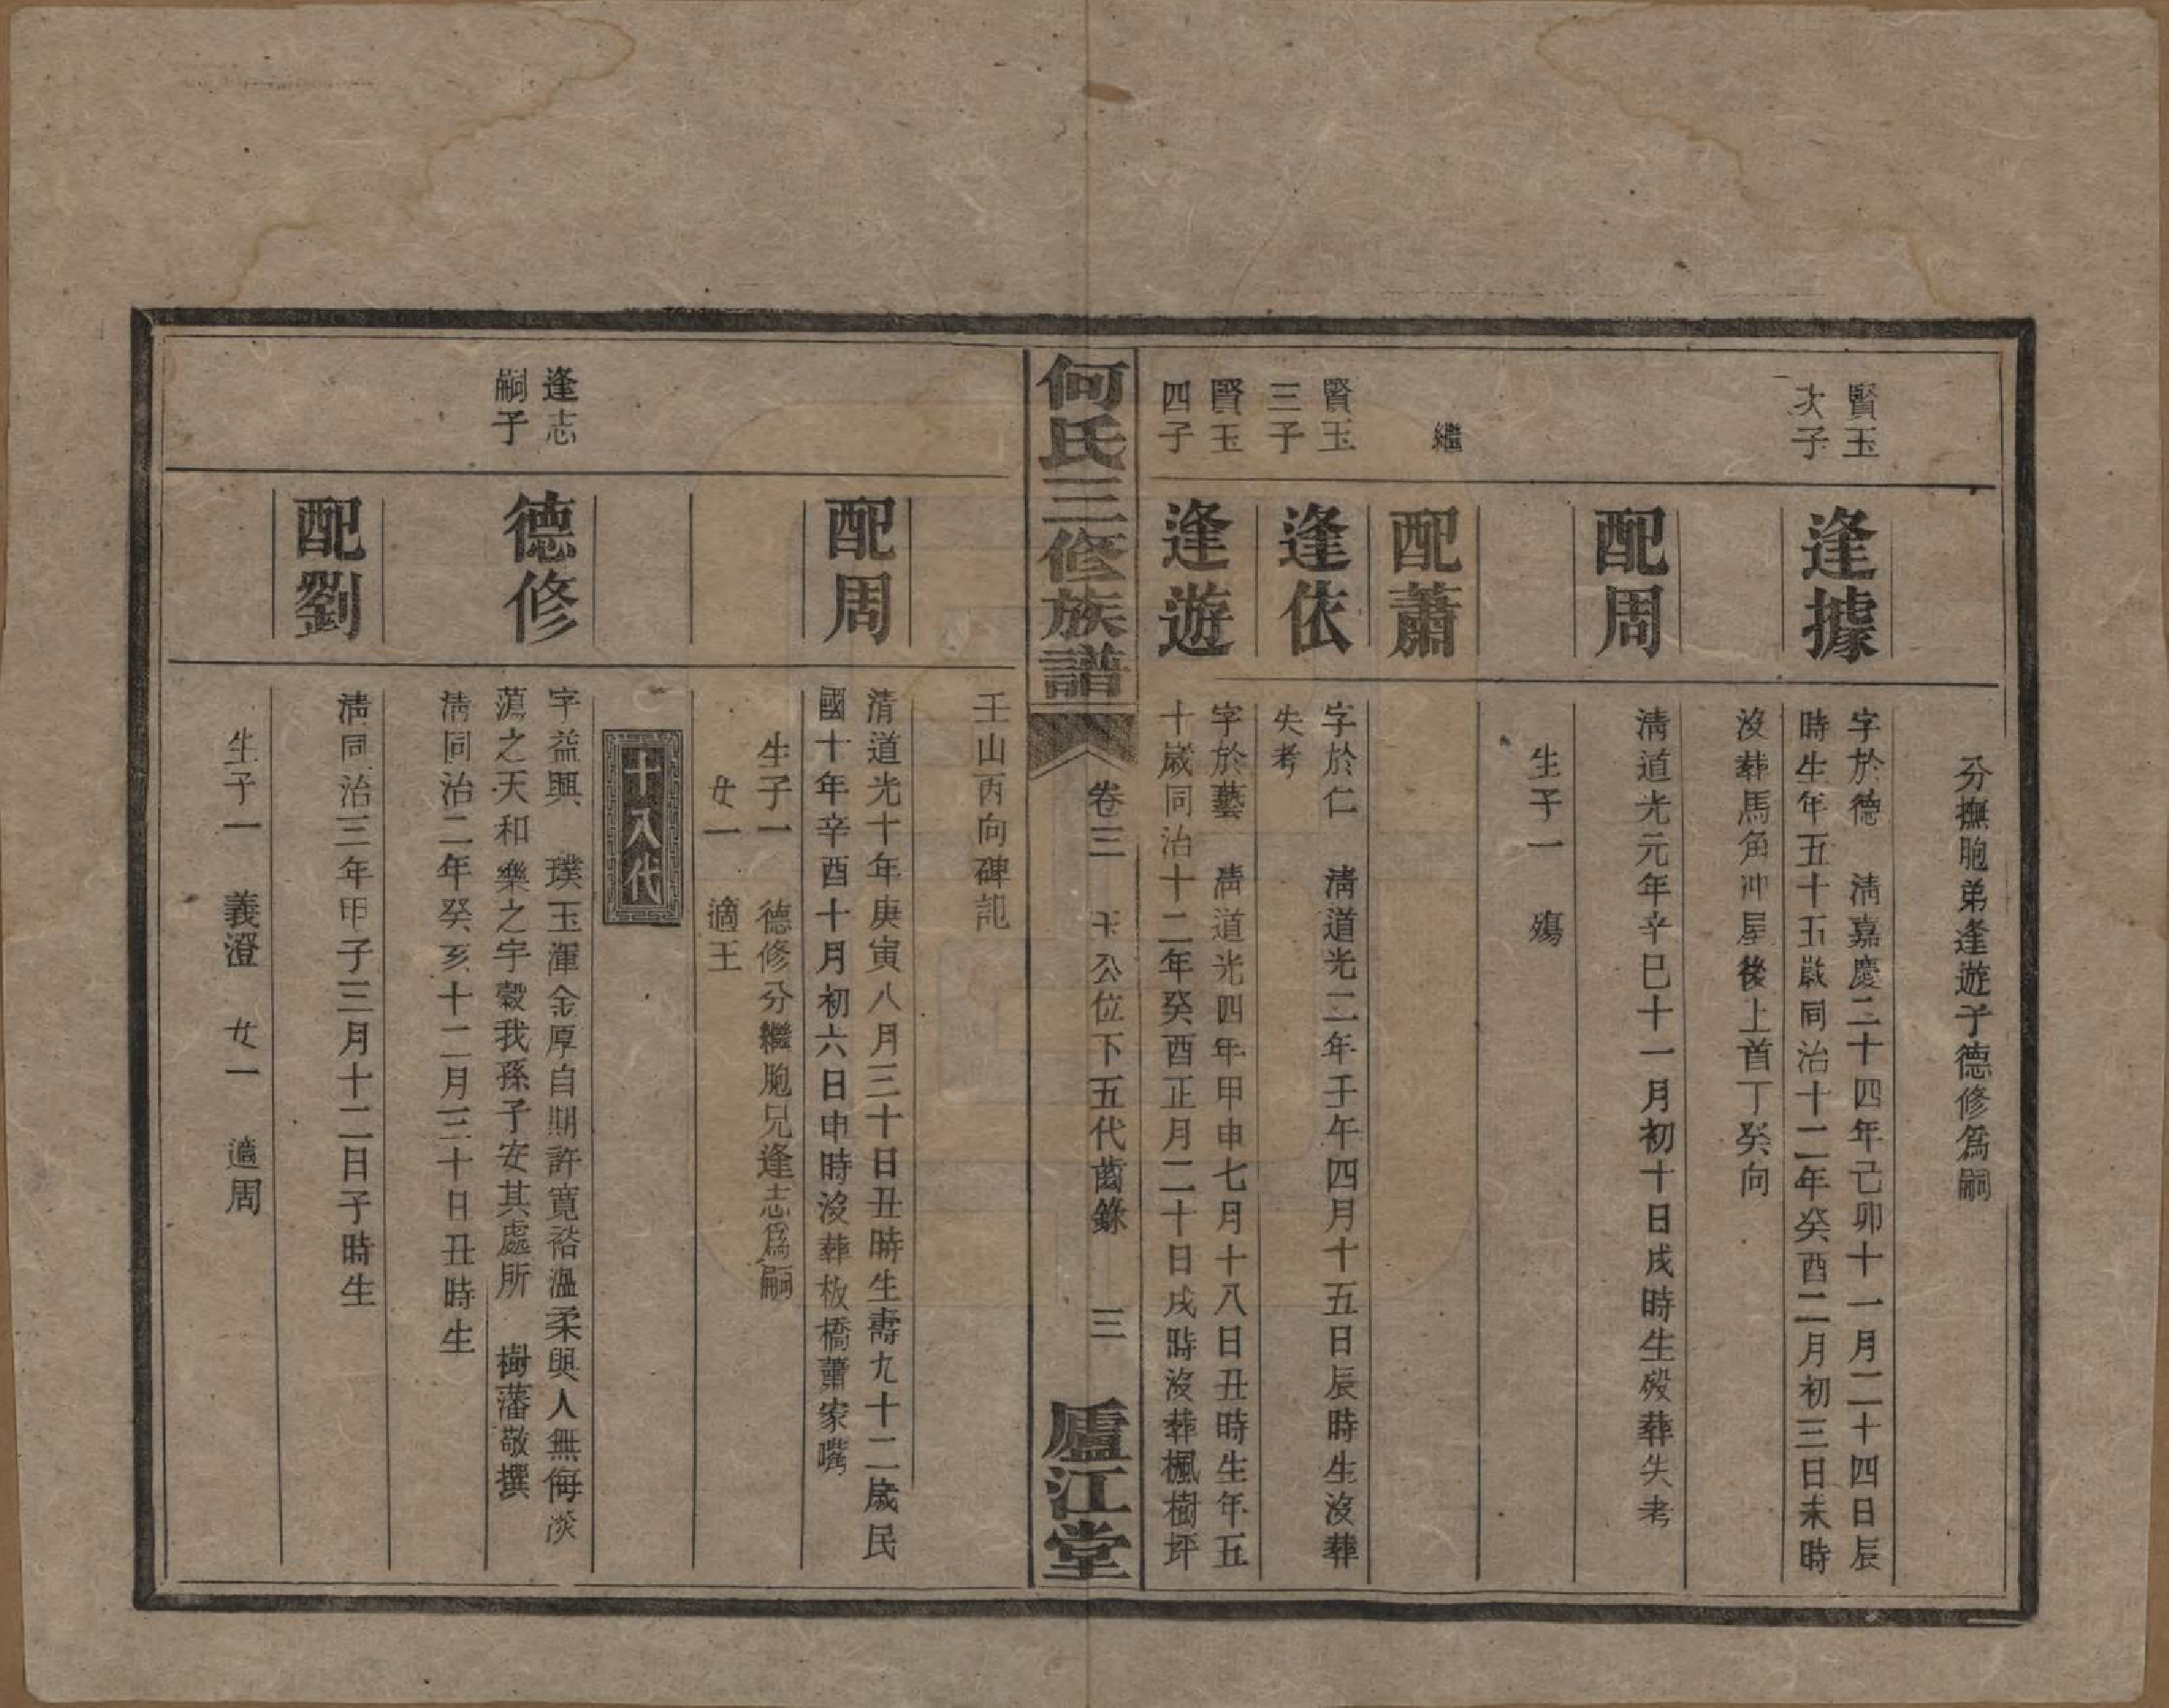 分撫胞弟逢遊子德修為嗣
賢玉
次子
逢據
字於德　清嘉慶二十四年己卯十一月二十四日辰
時生年五十五歲同治十二年癸酉二月初三日未時
沒葬馬角冲屋後上首丁癸向
配周
清道光元年辛巳十一月初十日戌時生歿葬失考
生子一　殤
繼
配蕭
賢玉
三子
逢依
字於仁　清道光二年壬午四月十五日辰時生沒葬
失考
賢玉
四子
逢遊
字於藝　清道光四年甲申七月十八日丑時生年五
十歲同治十二年癸酉正月二十日戌時沒葬楓樹坪
何氏三修族譜
卷三　公位下五代齒錄　三
廬江堂
壬山丙向碑記
配周
清道光十年庚寅八月三十日丑時生壽九十二歲民
國十年辛酉十月初六日申時沒葬板橋蕭家嘴
生子一　德修分繼胞兄逢志為嗣
女一　適王
十八代
逢志
嗣子
德修
字益興　璞玉渾金厚自期許寬裕溫柔與人無侮淡
蕩之天和樂之宇穀我孫子安其處所　樹藩敬撰
清同治二年癸亥十二月三十日丑時生
配劉
清同治三年甲子三月十二日子時生
生子一　義澄　女一　適周